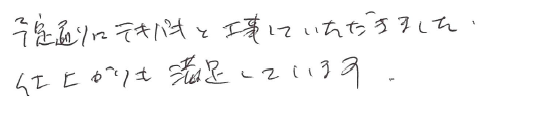 予定通りにテキパキと工事していただきました.
仕上がりも満足しています.